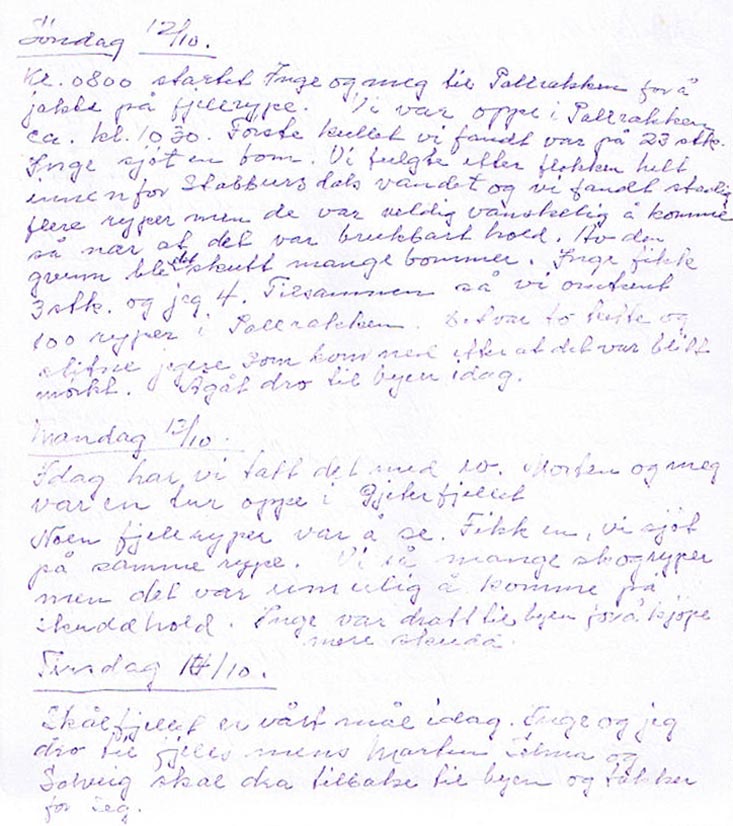 Söndag 12/10.
Kl. 0800 startet Inge og meg til Pallrakken for å
jakte på fjellrype. Vi var oppe i Pallrakken
ca. kl. 10 30. Første kullet vi fandt var på 23 stk.
Inge sjöt en bom. Vi fulgte etter flokken helt
innenfor Stabbursdals vandet og vi fandt stadig
flere ryper men de var veldig vanskelig å komme
så nær at det var brukbart hold. Av den
grunn ble det skutt mange bommer. Inge fikk
3 stk. og jeg 4. Tilsammen så vi omtrent
100 ryper i Pallrakken. Det var to trötte og
slitne jegere som kom ned etter at det var blitt
mörkt. Agåt dro til byen idag.
Mandag 13/10.
Idag har vi tatt det med ro. Morten og meg
var en tur oppe i Gjeterfjellet
Noen fjellryper var å se. Fikk en, vi sjöt
på samme rype. Vi så mange skogryper
men det var umulig å komme på
skuddhold. Inge var dratt til byen for å kjöpe
mere skudd.
Tirsdag 14/10.
Skålfjellet er vårt mål idag. Inge og jeg
dro til fjells mens Morten og
Solveig skal dra tilbake til byen og takker
for seg.